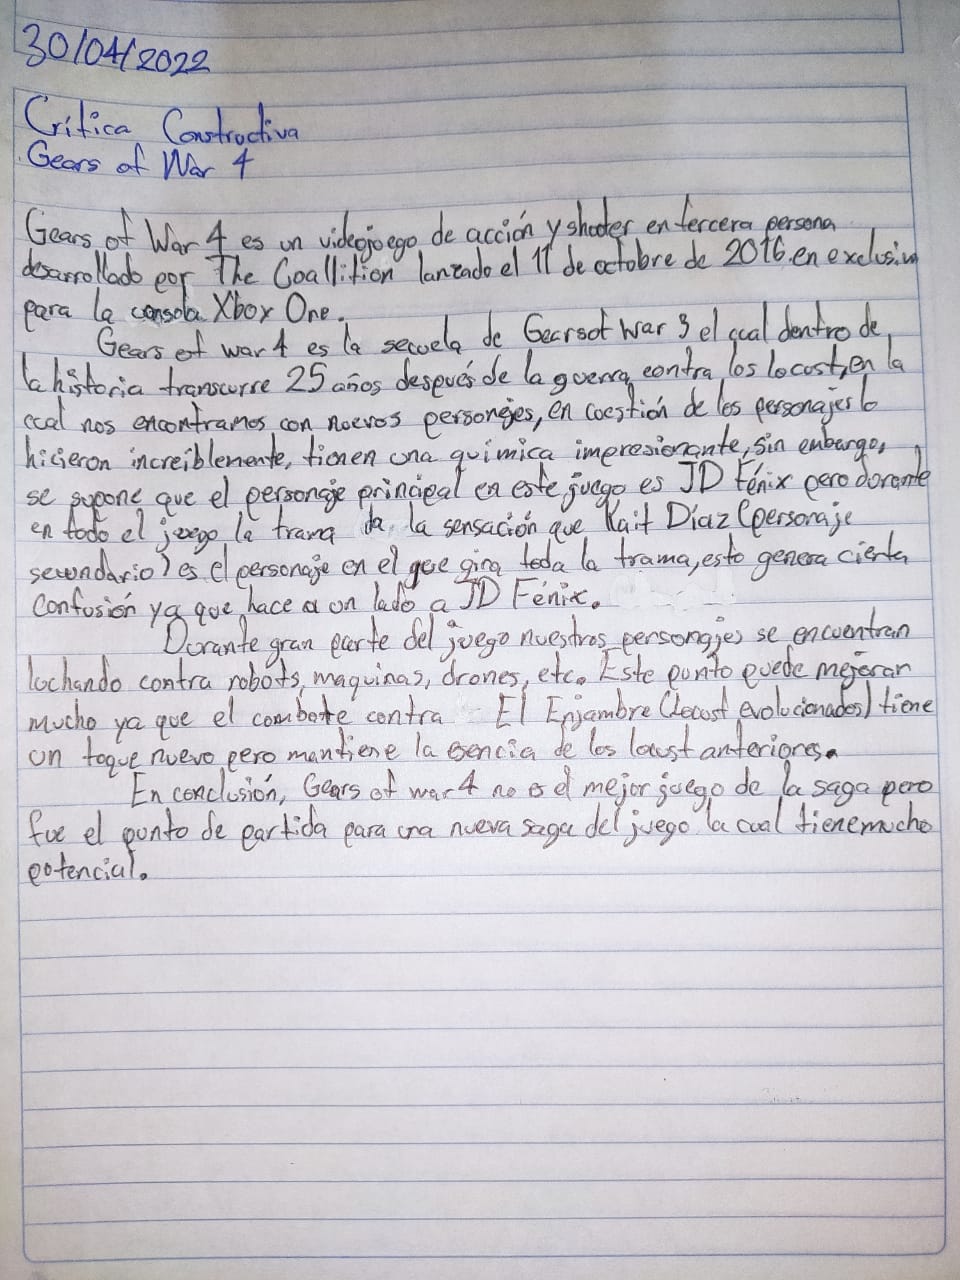 30/04/2022
Crítica Constructiva
Gears of War 4
Gears of War 4 es un videojoego de acción y shooter en tercera persona
desarrollado por The Coallition lanzado el 11 de octobre de 2016 en exclusiva
para la consola Xbox One.
Gears of war 4 es la secuela de Gears of War 3 el cual dentro de
la historia transcurre 25 años después de la guerra contra los locust, en la
cual nos encontramos con nuevos personajes, en cuestión de los personajes lo
hicieron increíblemente, tienen una química impresionante, sin enbargo,
se supone que el personaje principal en este juego es JD Fénix pero dorante
en todo el juego la trama da la sensación que Kait Díaz (personaje
secundario) es el personaje en el que gira toda la trama, esto genera cierta
confusión ya que hace a un lado a JD Fénix.
Durante gran parte del juego nuestros personajes se encuentran
luchando contra robots, maquinas, drones, etc. Este punto puede mejorar
mucho ya que el combate contra El Enjambre (locust evolucionados) tiene
un toque nuevo pero mantiene la esencia de los locust anteriores.
En conclusión, Gears of war 4 no es el mejor juego de la saga pero
fue el punto de partida para una nueva saga del juego la cual tiene mucho
potencial.